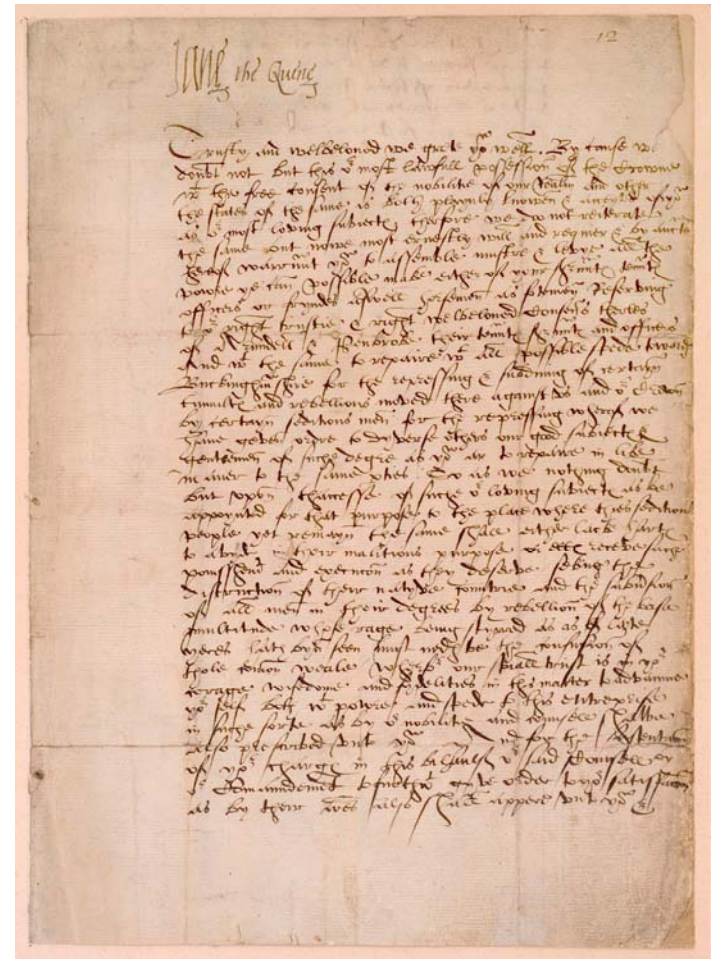 12
Jane the Quene
Trusty and welbeloved we grete yoͬ well. By cause we
doubt not but this oͬ most lawfull possession of the Crowne
wͭ the free consent of the nobilitie of our Realm and other
the states of the same is both playnly knowen & accepted of yoͬ
as oͬ most loving subiects therfore we do not reiterate
the same but nowe most ernestly will and require & by auctͭ
herof warraunt yoͬ to assemble mustre & levye all the
powre ye can possible make either of your servͭ tenͭ
officers or freends aswell horsemen as footemen Reserving
to oͬ right trustie & right welbeloved Cousens therles
of Arundell & Penbroke their tenͭ servͭ and officers
And wͭ the same to repaire wͭ all possible spede towards
Buckinghamshire for the repressing & subduing of certain
tumults and rebellions moved there against us and oͬ Crown
by certain seditious men for the repressing wherof we
have geven ordre to dyverse others our good subiects &
gentlemen of suche degre as yoͬ ar to repaire in like
maner to the same pties So as we nothing doubt
but upon thaccesse of suche oͬ loving subiects as be
appointed for that purpose to the place where this seditious
people yet remayn the same shall either lack harts
to abyde in their malitious purpose or receive suche
punishmͭ and execucon as they deserve seking the
distruction of their natyve countrie and the subversion
of all men in their degrees by rebellion of the base
multitude whose rage being styrred as of late
yeres hath byn seen must nedes be the confusion of
thole comon weale Wherfore our speciall trust is in yoͬ
corage wisedome and fydelities in this matter to advaunce
yoͬ self both wͭ powre and spede to this entreprise
in suche sorte as by oͬ nobilitie and counsell shalbe
also prescribed unto yoͬ And for the sustentacon
of yoͬ charge in this behaulf oͬ said Counsell by
oͬ comaundemͭ do furthwͭ geve order to yoͬ satisfaction
as by their also shall appere unto yoͬ